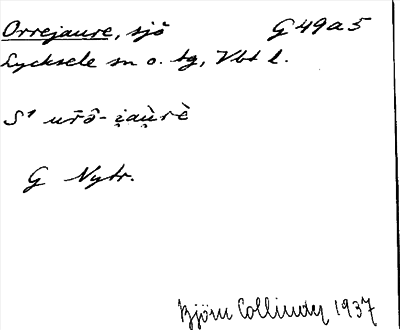 Orrejaure, sjö G 49 a 5
Lycksele sn o. tg, Vbt l.
G Nytr.
Björn Collinder 1937